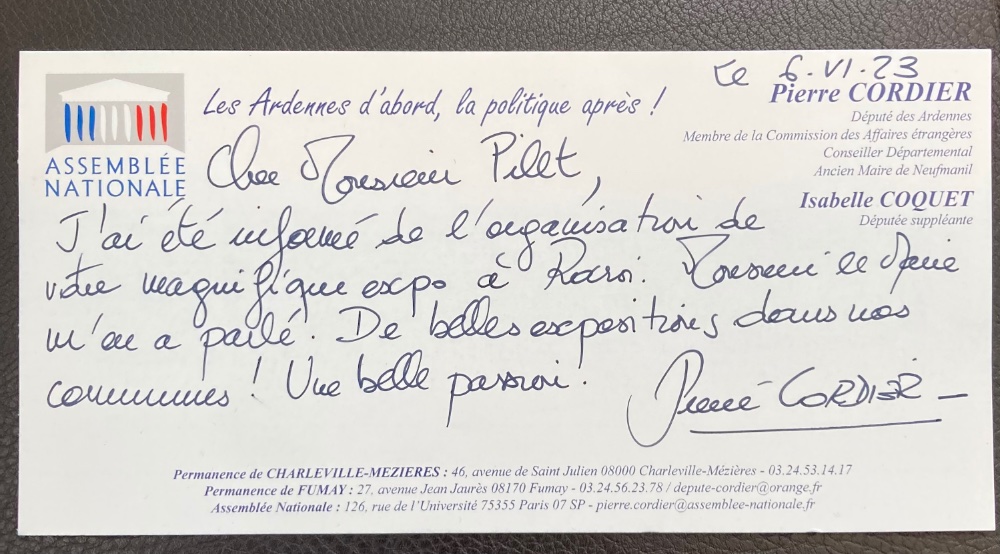 Le 6.VI.23
ASSEMBLÉE
NATIONALE
Les Ardennes d'abord, la politique après !
Pierre CORDIER
Député des Ardennes
Membre de la Commission des Affaires étrangères
Conseiller Départemental
Ancien Maire de Neufmanil
Isabelle COQUET
Députée suppléante
Cher Monsieur Pilet,
J'ai été informé de l'organisation de
votre magnifique expo à Rocroi. Monsieur le Maire
m'en a parlé. De belles expositions dans nos
communes ! Une belle passion !
Pierre CORDIER
Permanence de CHARLEVILLE-MEZIERES : 46, avenue de Saint Julien 08000 Charleville-Mézières - 03.24.53.14.17
Permanence de FUMAY : 27, avenue Jean Jaurès 08170 Fumay - 03.24.56.23.78 / depute-cordier@orange.fr
Assemblée Nationale : 126, rue de l'Université 75355 Paris 07 SP - pierre.cordier@assemblee-nationale.fr